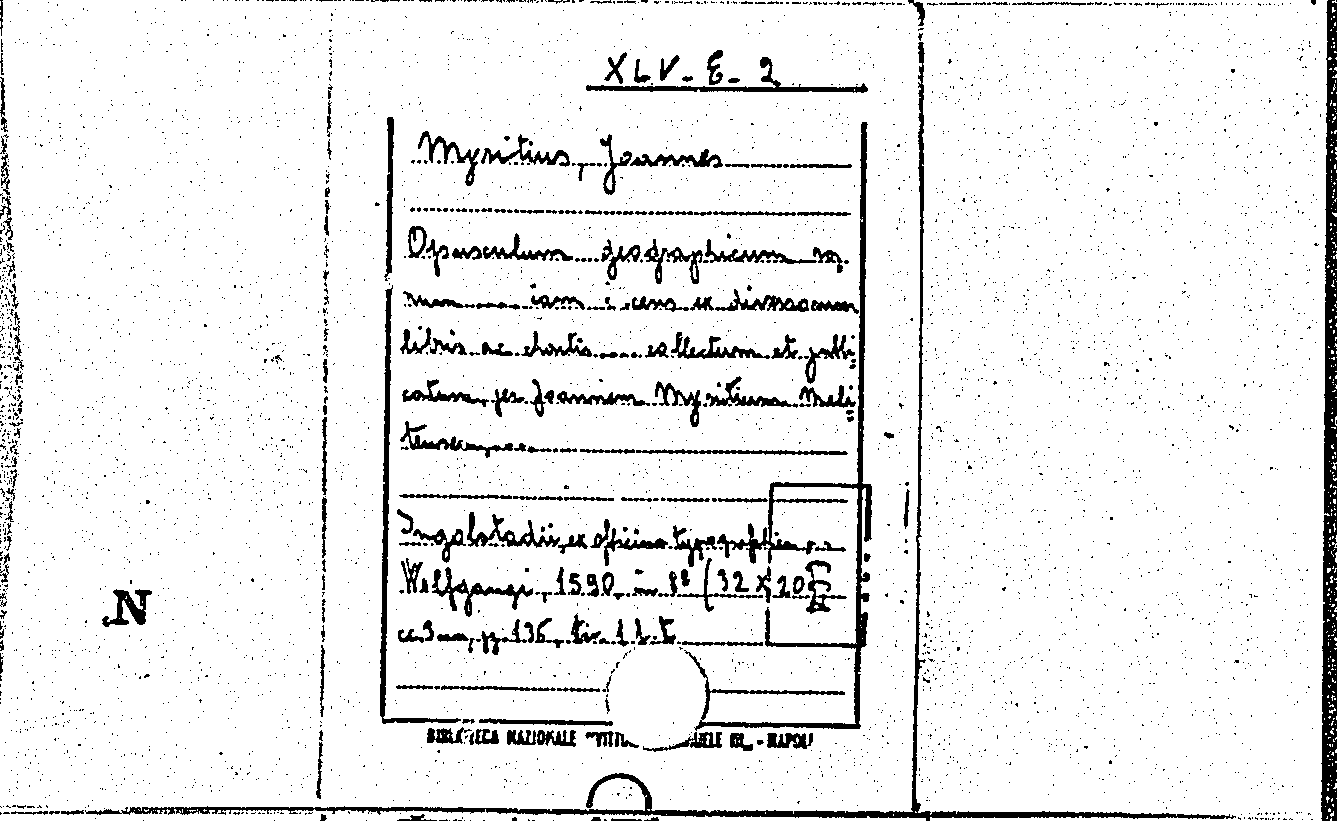 XLV. E. 2
Myritius, Joannes
Opusculum geographicum ra
rum .... iam ex diversorum
libris ac chartis .... collectum et publi
catum, per Joannem Myritium Meli
tensem, ...
Ingolstadii, ex officina typographica
Wolfgangi, 1590, in 8º (32 x 20)
cc. 3 nn, pp. 136, tav. 1 f. t.
N
BIBLIOTECA NAZIONALE "VITT ... UELE III" - NAPOLI